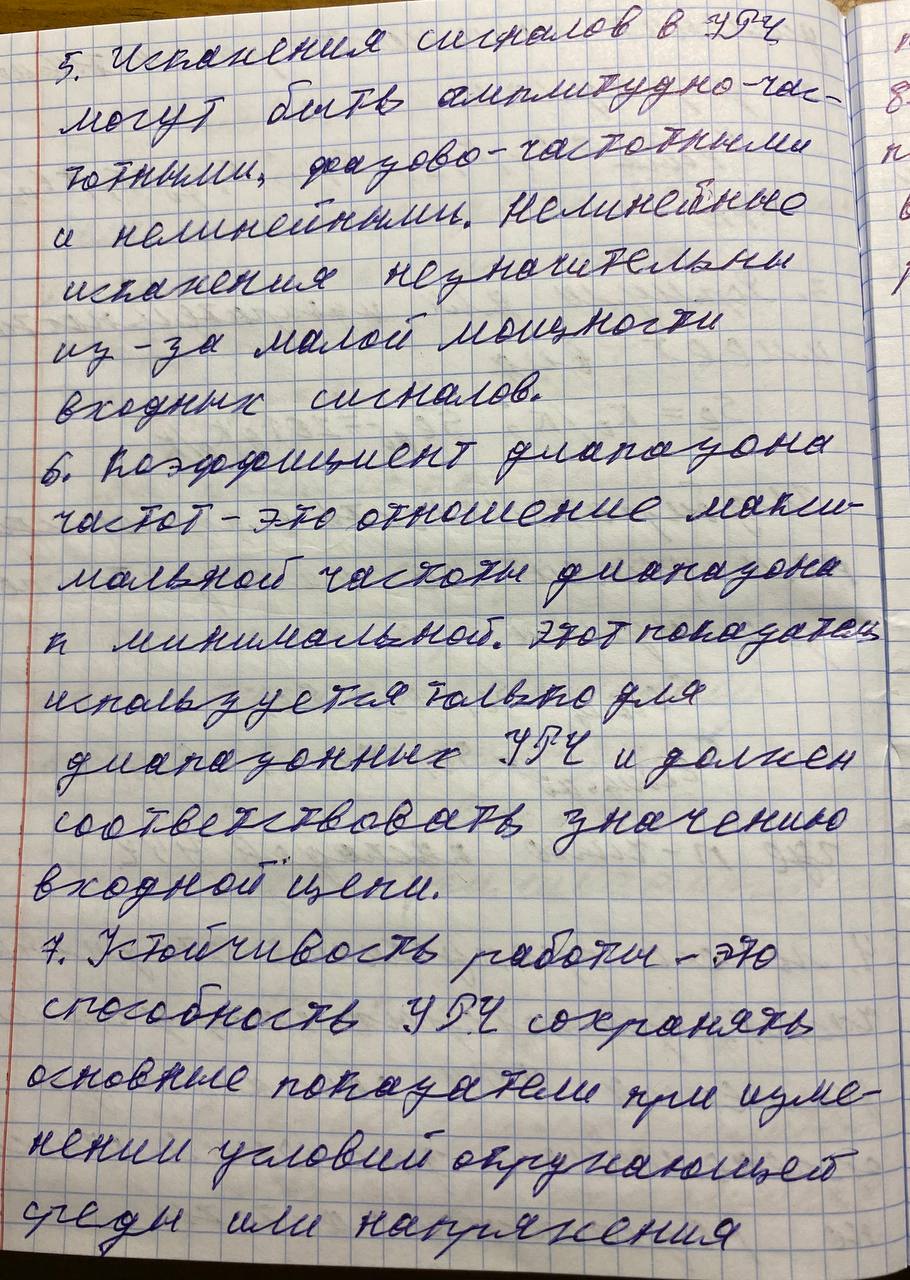 5. Искажения сигналов в УРЧ
могут быть амплитудно-час-
тотными, фазово-частотными
и нелинейными. Нелинейные
искажения незначительны
из-за малой мощности
входных сигналов.
6. Коэффициент диапазона
частот - это отношение макси-
мальной частоты диапазона
к минимальной. Этот показатель
используется только для
диапазонных УРЧ и должен
соответствовать значению
входной цепи.
7. Устойчивость работы - это
способность УРЧ сохранять
основные показатели при изме-
нении условий окружающей
среды или напряжения